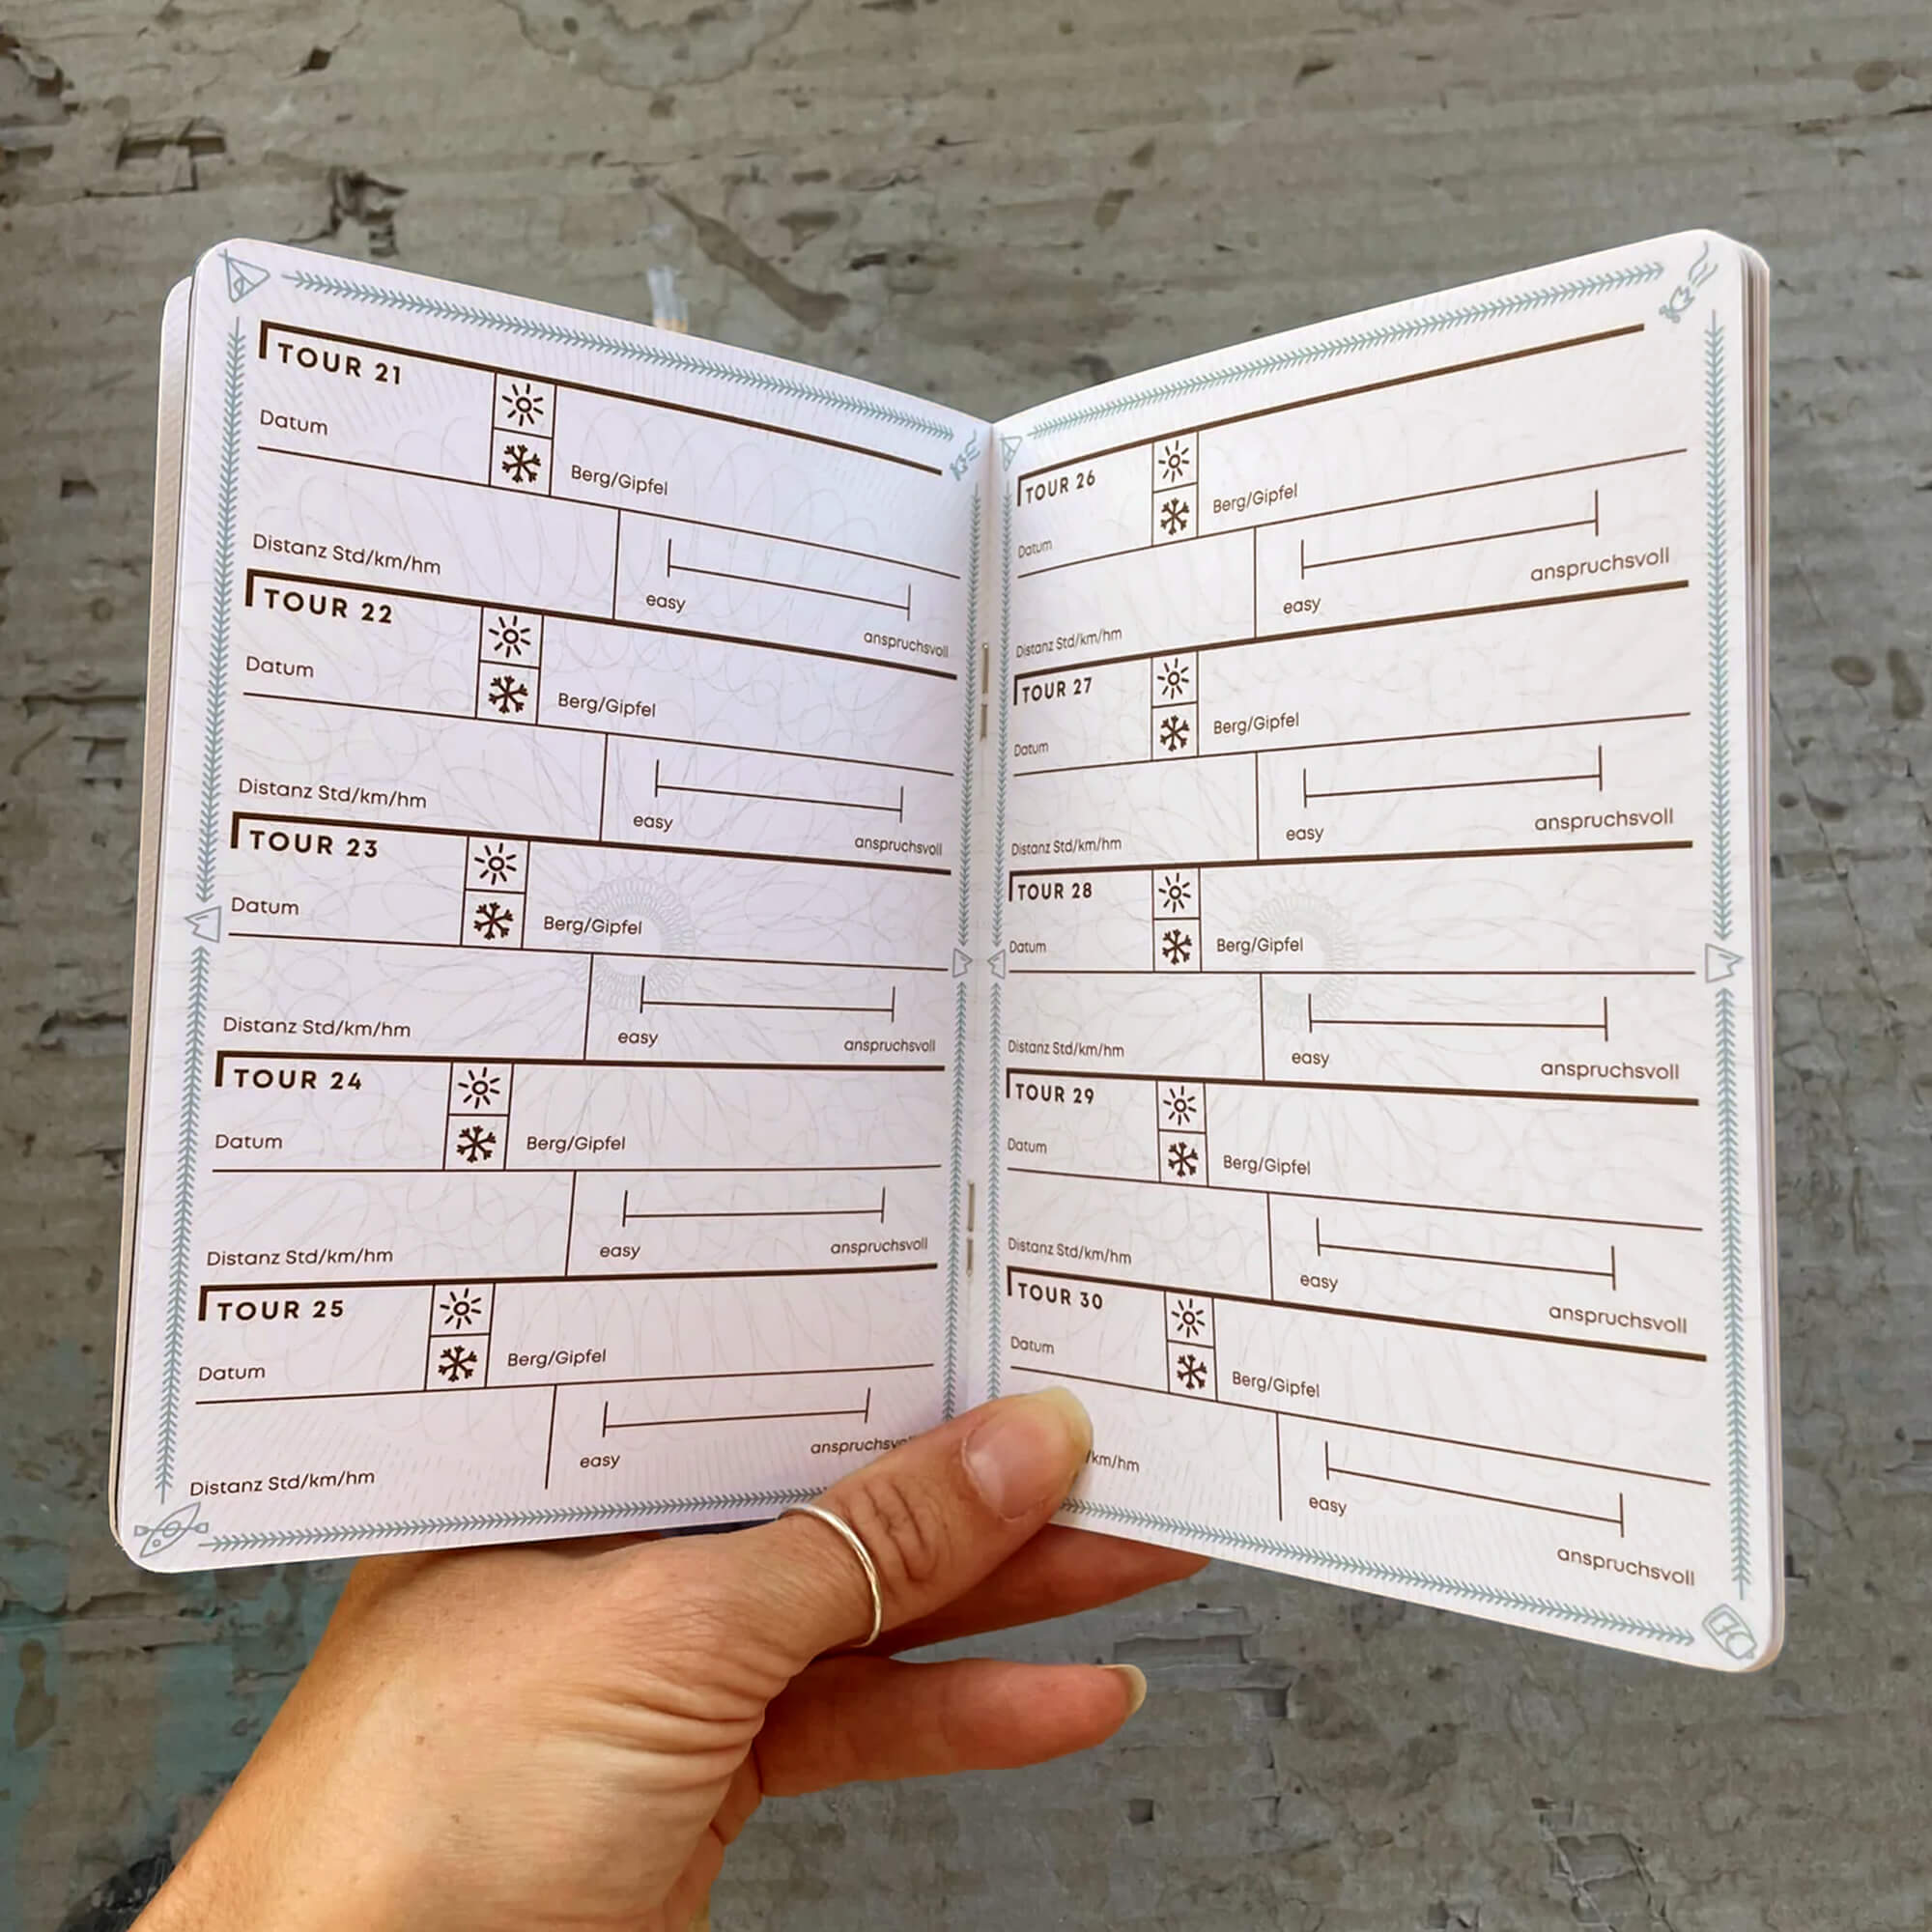 TOUR 21
Datum
Berg/Gipfel
Distanz Std/km/hm
easy
anspruchsvoll
TOUR 22
Datum
Berg/Gipfel
Distanz Std/km/hm
easy
anspruchsvoll
TOUR 23
Datum
Berg/Gipfel
Distanz Std/km/hm
easy
anspruchsvoll
TOUR 24
Datum
Berg/Gipfel
Distanz Std/km/hm
easy
anspruchsvoll
TOUR 25
Datum
Berg/Gipfel
Distanz Std/km/hm
easy
anspruchsvo
TOUR 26
Datum
Berg/Gipfel
Distanz Std/km/hm
easy
anspruchsvoll
TOUR 27
Datum
Berg/Gipfel
Distanz Std/km/hm
easy
anspruchsvoll
TOUR 28
Datum
Berg/Gipfel
Distanz Std/km/hm
easy
anspruchsvoll
TOUR 29
Datum
Berg/Gipfel
Distanz Std/km/hm
easy
anspruchsvoll
TOUR 30
Datum
Berg/Gipfel
/km/hm
easy
anspruchsvoll